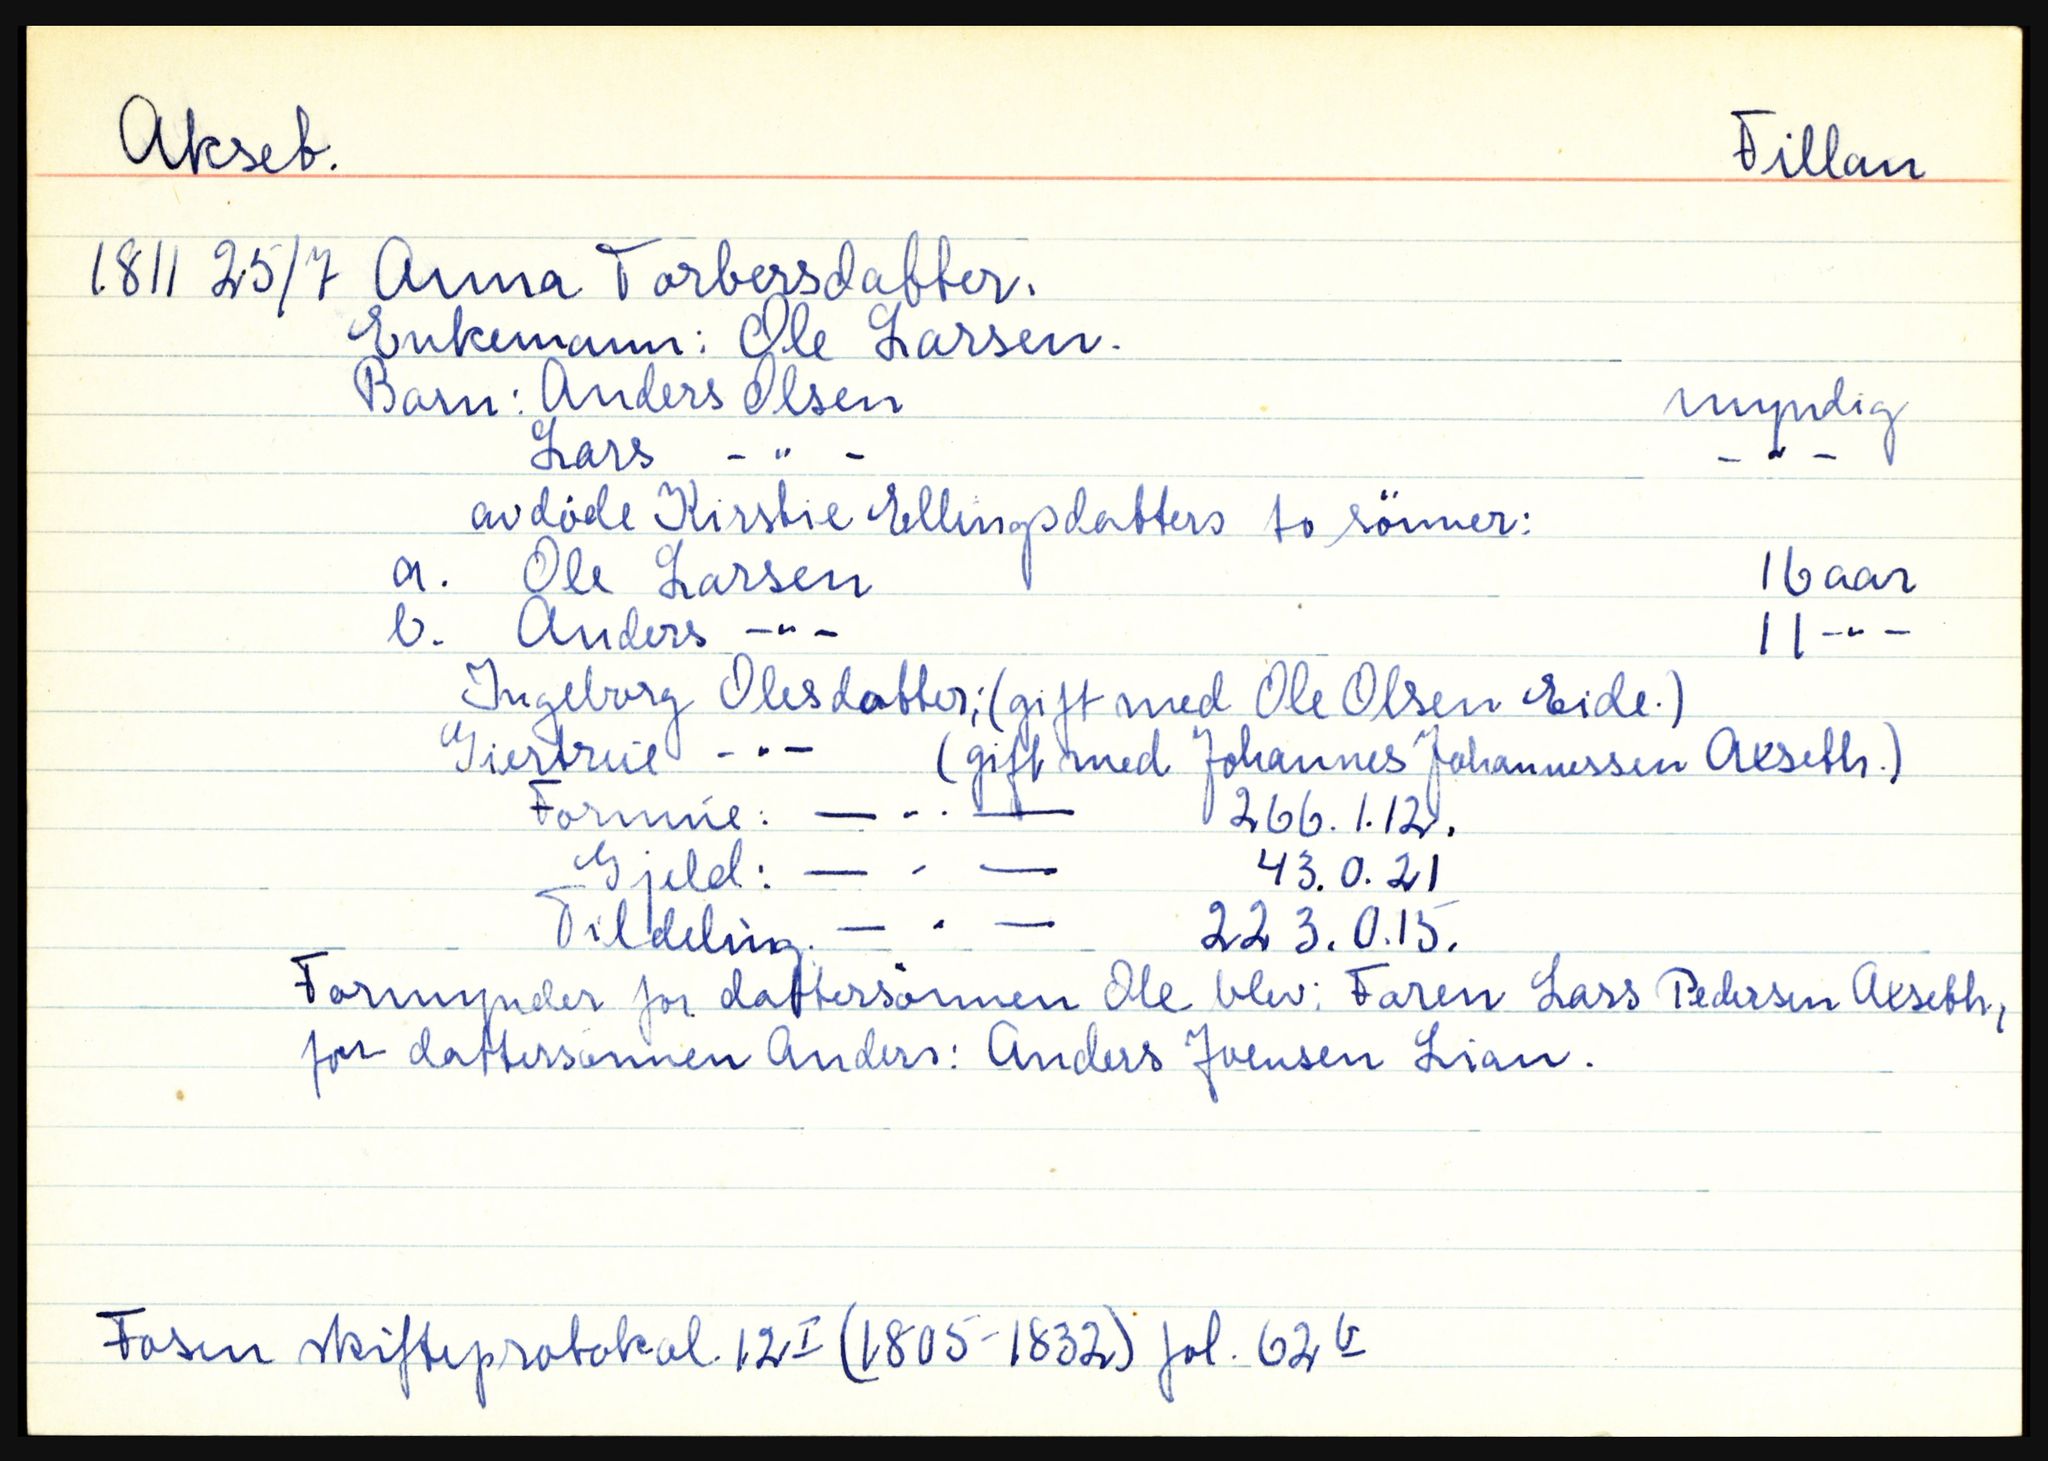 Akset. Fillan
1811 25/7 Anna Torbersdatter.
Enkemann: Ole Larsen.
Barn: Anders Olsen myndig
Lars - " - - " -
avdöde Kirstie Ellingsdatters to sönner:
a. Ole Larsen 16 aar
b. Anders - " - 11 - " -
Ingeborg Olesdatter; (gift med Ole Olsen Eide.)
Giertrue - " - (gift med Johannes Johannessen Axseth.)
Formue: — " . — 266. 1. 12.
Gjeld: — " — 43. 0. 21
Til deling. — " — 223. 0. 15.
Formynder for dattersönnen Ole blev: Faren Lars Pedersen Axseth,
for dattersönnen Anders: Anders Joensen Lian.
Fosen skifteprotokol. 12 I (1805-1832) fol. 62 b